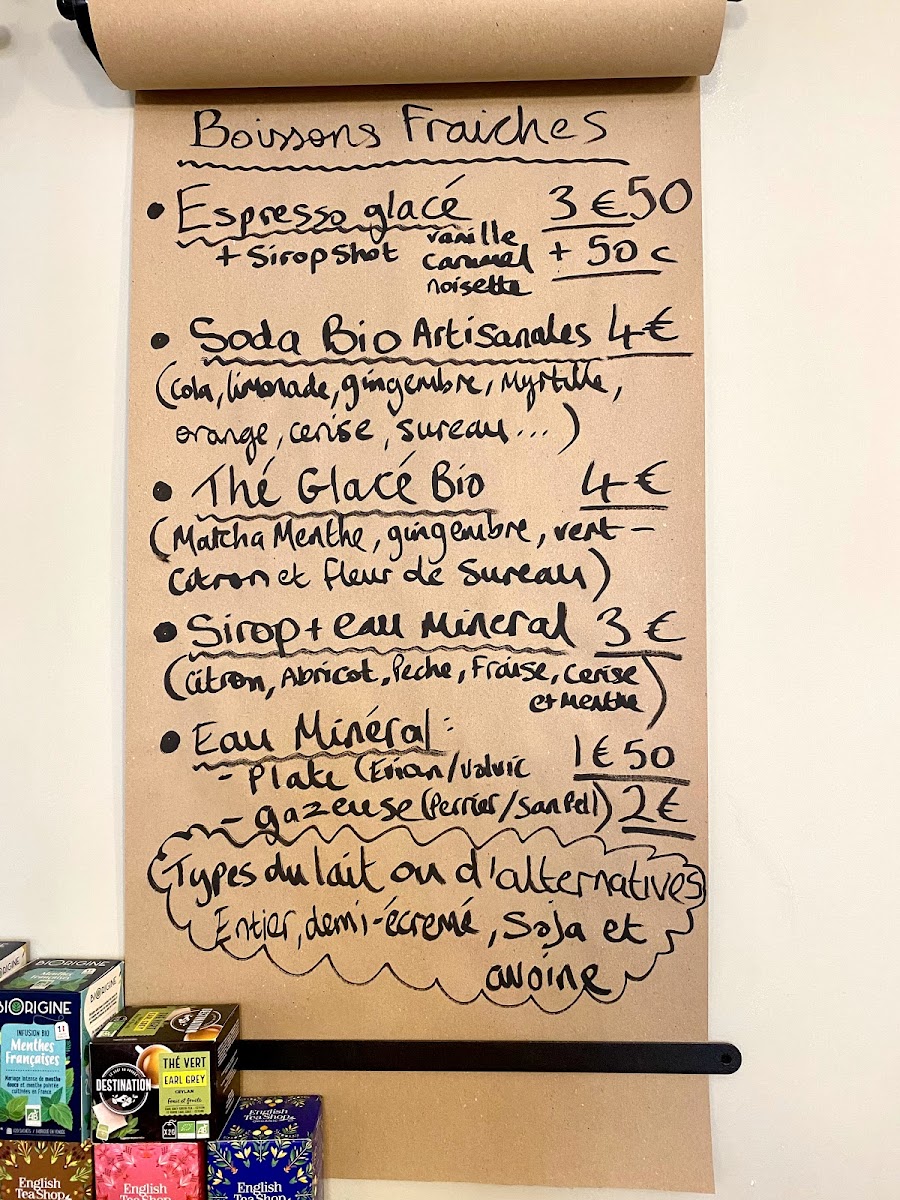 Boissons Fraiches
• Espresso glacé 3€50
+ Sirop Shot vanille caramel noisette + 50 c
• Soda Bio Artisanales 4€
(Cola, limonade, gingembre, Myrtille,
orange, cerise, sureau...)
• Thé Glacé Bio 4€
(Matcha Menthe, gingembre, vert-
Citron et fleur de Sureau)
• Sirop + eau Mineral 3€
(Citron, Abricot, Peche, Fraise, Cerise
et Menthe)
• Eau Minéral:
- Plate (Evian/Volvic 1€50
- gazeuse (Perrier/San Pell) 2€
Types du lait ou d'alternatives
Entier, demi-écremé, Soja et
avoine
BIORIGINE
BIORIGINE
INFUSION BIO
Menthes
Françaises
Mariage intense de menthe
douce et menthe poivrée
cultivées en France
AB
DESTINATION
THÉ VERT
EARL GREY
CEYLAN
X20
AB
English
Tea Shop
English
Tea Shop
English
Tea Shop
English
Tea Shop